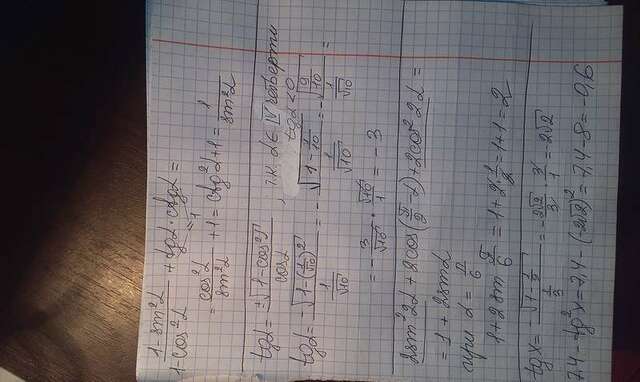 1-sin²α / 1-cos²α + tgα·ctgα =
= cos²α / sin²α + 1 = ctg²α + 1 = 1 / sin²α
tgα = ±√(1-cos²α) / cosα, т.к. α ∈ IV четверти
tgα < 0
tgα = -√(1-(1/√10)²) / (1/√10) = -√(1-1/10) / (1/√10) = -√(9/10) / (1/√10) =
= -3/√10 · √10/1 = -3
2sin²2α + 2cos(π/2-α) + 2cos²2α =
= 1 + 2sinα
при α = π/6
1 + 2sin π/6 = 1 + 2·1/2 = 1 + 1 = 2
tgx = -√(1-1/9) / (1/3) = -2√2/3 · 3/1 = -2√2
7,4 - tg²x = 7,4 - (-2√2)² = 7,4 - 8 = -0,6